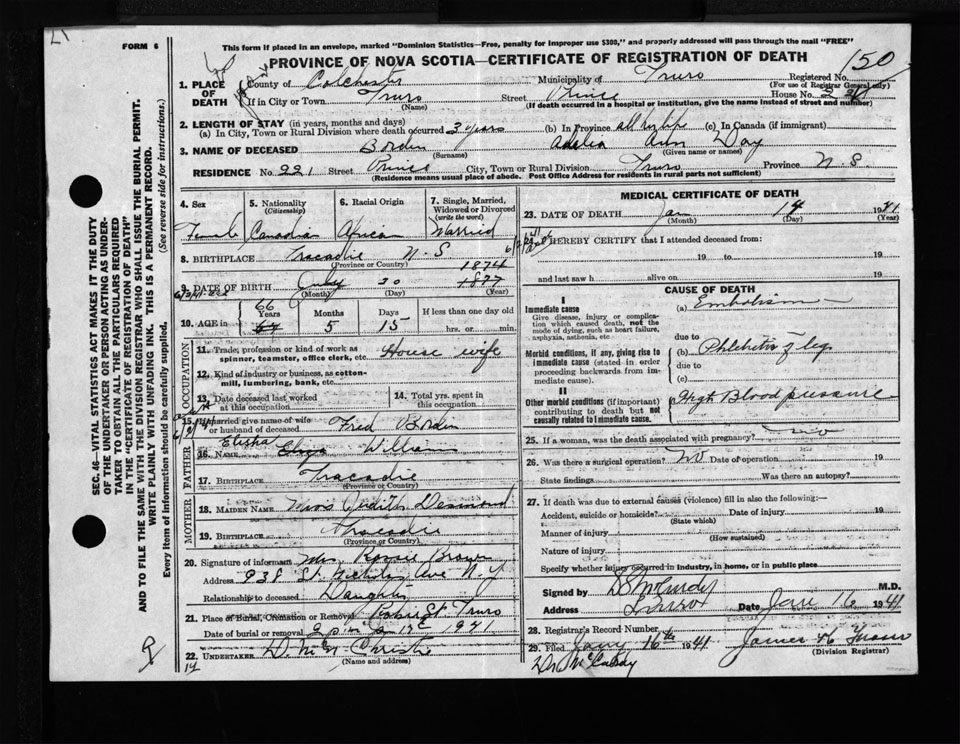 FORM 6
This form if placed in an envelope, marked "Dominion Statistics—Free, penalty for improper use $300," and properly addressed will pass through the mail "FREE"
PROVINCE OF NOVA SCOTIA—CERTIFICATE OF REGISTRATION OF DEATH
150
1. PLACE OF DEATH County of Colchester Municipality of Truro Registered No.
(For use of Registrar General only)
If in City or Town Truro Street Prince House No.
(Name) (If death occurred in a hospital or institution, give the name instead of street and number)
2. LENGTH OF STAY (in years, months and days)
(a) In City, Town or Rural Division where death occurred 3 years (b) In Province all her life (c) In Canada (if immigrant)
3. NAME OF DECEASED Borden Adelia Ann Day
(Surname) (Given name or names)
RESIDENCE No. 221 Street Prince City, Town or Rural Division Truro Province N.S.
(Residence means usual place of abode. Post Office Address for residents in rural parts not sufficient)
4. Sex 5. Nationality (Citizenship) 6. Racial Origin 7. Single, Married, Widowed or Divorced (write the word)
Female Canadian African Married
8. BIRTHPLACE Tracadie N.S
(Province or Country)
1874
9. DATE OF BIRTH July 30 1877
(Month) (Day) (Year)
66
10. AGE in Years Months Days If less than one day old
5 15 hrs. or min.
OCCUPATION
11. Trade, profession or kind of work as spinner, teamster, office clerk, etc. House wife
12. Kind of industry or business, as cotton-mill, lumbering, bank, etc.
13. Date deceased last worked at this occupation
14. Total yrs. spent in this occupation
15. If married give name of wife or husband of deceased Fred Borden
FATHER
Elisha
16. NAME William
17. BIRTHPLACE Tracadie
(Province or Country)
MOTHER
18. MAIDEN NAME Judith Desmond
19. BIRTHPLACE Tracadie
(Province or Country)
20. Signature of informant Mrs. Rossie Brown
Address 938 St. Nicholas Ave N.Y
Relationship to deceased Daughter
21. Place of Burial, Cremation or Removal Robie St Truro
Date of burial or removal 2 p.m. Jan 17 1941
22. UNDERTAKER Christie
(Name and address)
14
MEDICAL CERTIFICATE OF DEATH
23. DATE OF DEATH Jan 14 1941
(Month) (Day) (Year)
I HEREBY CERTIFY that I attended deceased from:
19 to 19
and last saw h alive on 19
CAUSE OF DEATH
I
Immediate cause
Give disease, injury or complication which caused death, not the mode of dying, such as heart failure, asphyxia, asthenia, etc.
(a) Embolism
due to
Morbid conditions, if any, giving rise to immediate cause (stated in order proceeding backwards from immediate cause).
(b) Phlebitis of leg
due to
(c)
II
Other morbid conditions (if important) contributing to death but not causally related to immediate cause.
High Blood pressure
25. If a woman, was the death associated with pregnancy? no
26. Was there a surgical operation? No Date of operation 19
State findings Was there an autopsy?
27. If death was due to external causes (violence) fill in also the following:—
Accident, suicide or homicide? Date of injury 19
(State which)
Manner of injury
(How sustained)
Nature of injury
Specify whether injury occurred in Industry, in home, or in public place
Signed by M.D.
Address Truro Date Jan 16 1941
28. Registrar's Record Number
29. Filed Jany 16th 1941 James
(Division Registrar)
Dr. McCurdy
SEC. 46—VITAL STATISTICS ACT MAKES IT THE DUTY
OF THE UNDERTAKER OR PERSON ACTING AS UNDERTAKER TO OBTAIN ALL THE PARTICULARS REQUIRED
IN THE "CERTIFICATE OF REGISTRATION OF DEATH"
AND TO FILE THE SAME WITH THE DIVISION REGISTRAR WHO SHALL ISSUE THE BURIAL PERMIT.
WRITE PLAINLY WITH UNFADING INK. THIS IS A PERMANENT RECORD.
Every item of Information should be carefully supplied. (See reverse side for instructions.)